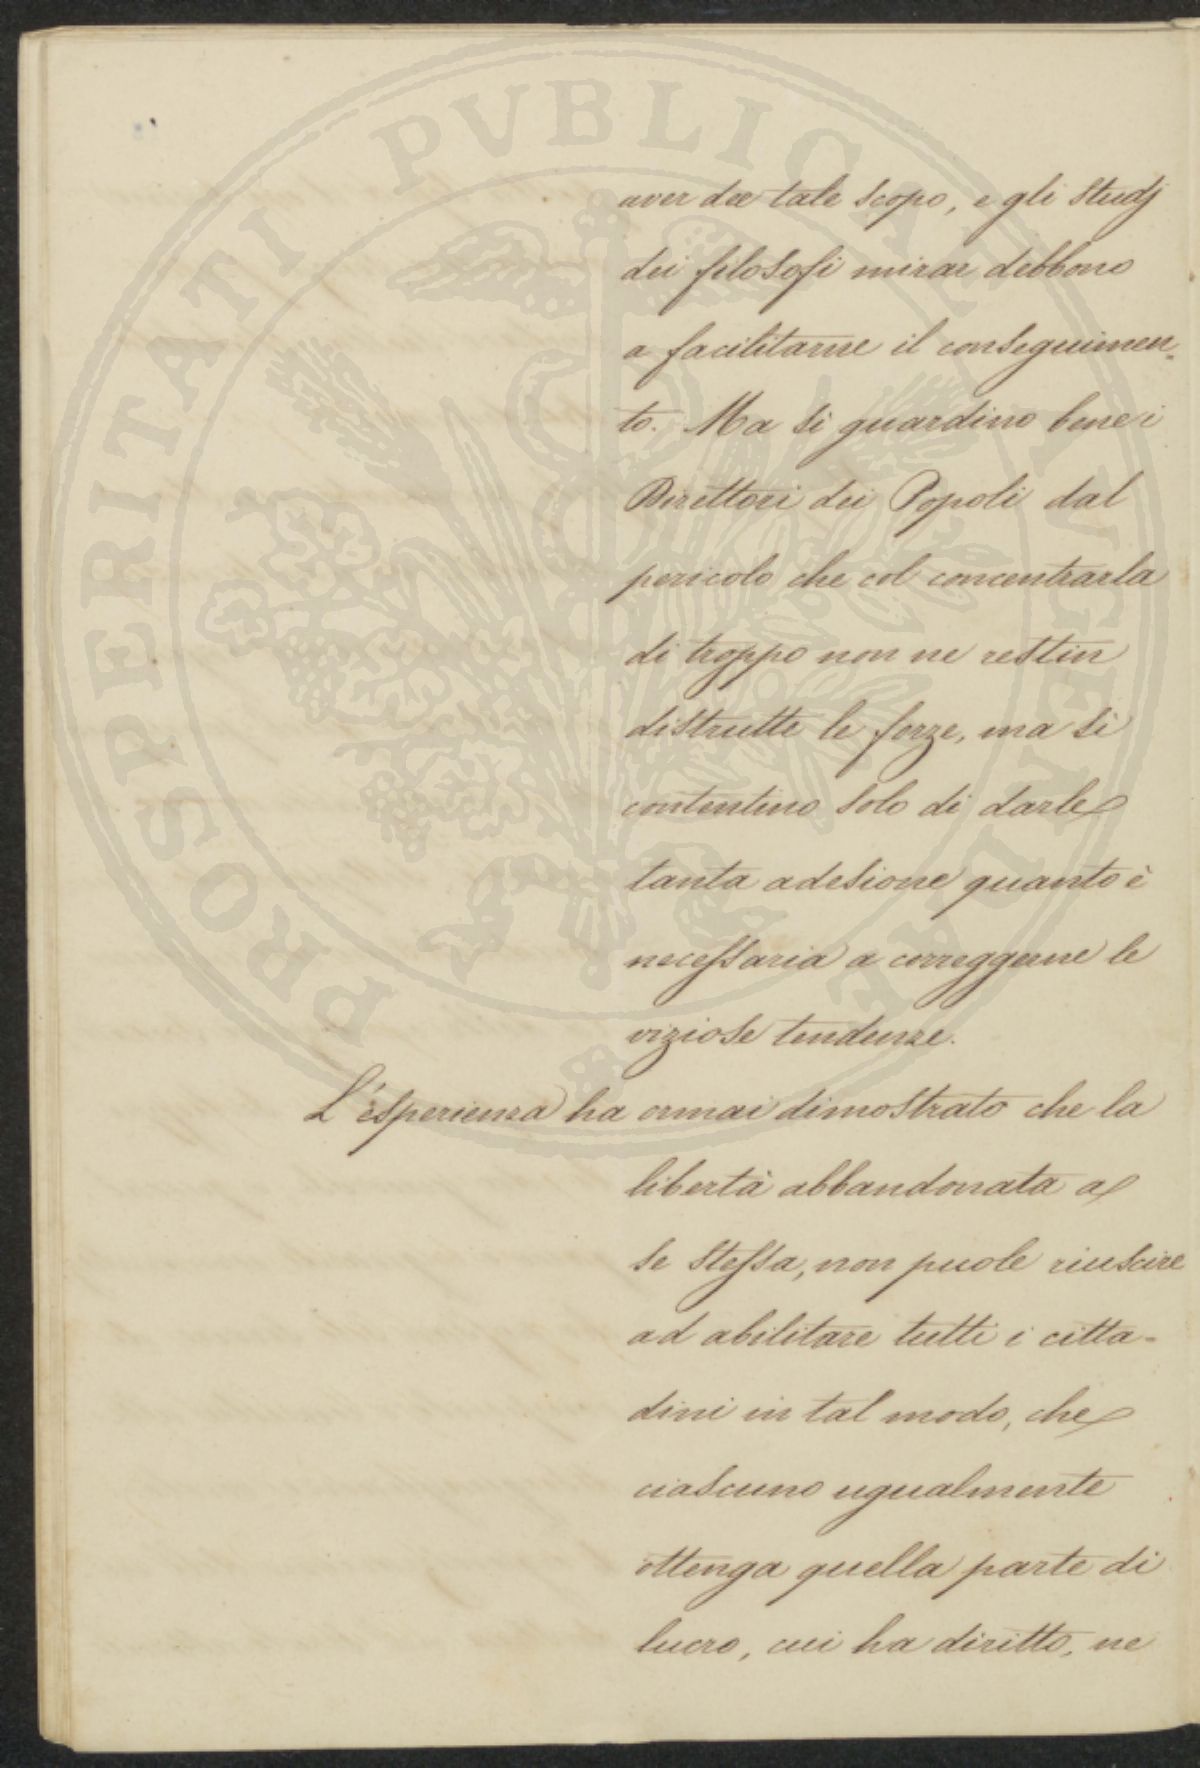 aver dee tale scopo, e gli studj
dei filosofi mirar debbono
a facilitarne il conseguimen-
to. Ma si guardino bene i
Direttori dei Popoli dal
pericolo che col concentrarla
di troppo non ne restin
distrutte le forze, ma si
contentino solo di darle
tanta adesione quanto è
necessaria a correggerne le
viziose tendenze.
L'esperienza ha ormai dimostrato che la
libertà abbandonata a
se stessa, non puole riuscire
ad abilitare tutti i citta-
dini in tal modo, che
ciascuno ugualmente
ottenga quella parte di
lucro, cui ha diritto, ne
PROSPERITATI PVBLICAE AVGENDAE